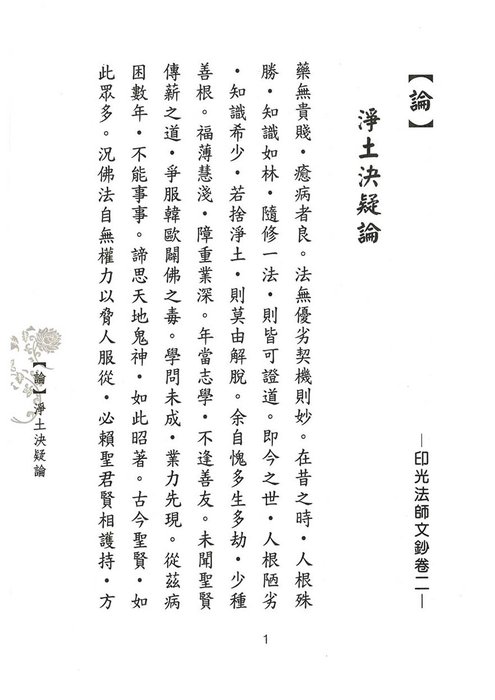 —印光法師文鈔卷二—
【論】
淨土決疑論
藥無貴賤‧癒病者良。法無優劣契機則妙。在昔之時‧人根殊
勝‧知識如林‧隨修一法‧則皆可證道。即今之世‧人根陋劣
‧知識希少‧若捨淨土‧則莫由解脫。余自愧多生多劫‧少種
善根。福薄慧淺‧障重業深。年當志學‧不逢善友。未聞聖賢
傳薪之道‧爭服韓歐闢佛之毒。學問未成‧業力先現。從茲病
困數年‧不能事事。諦思天地鬼神‧如此昭著。古今聖賢‧如
此眾多。況佛法自無權力以脅人服從‧必賴聖君賢相護持‧方
【論】淨土決疑論
1